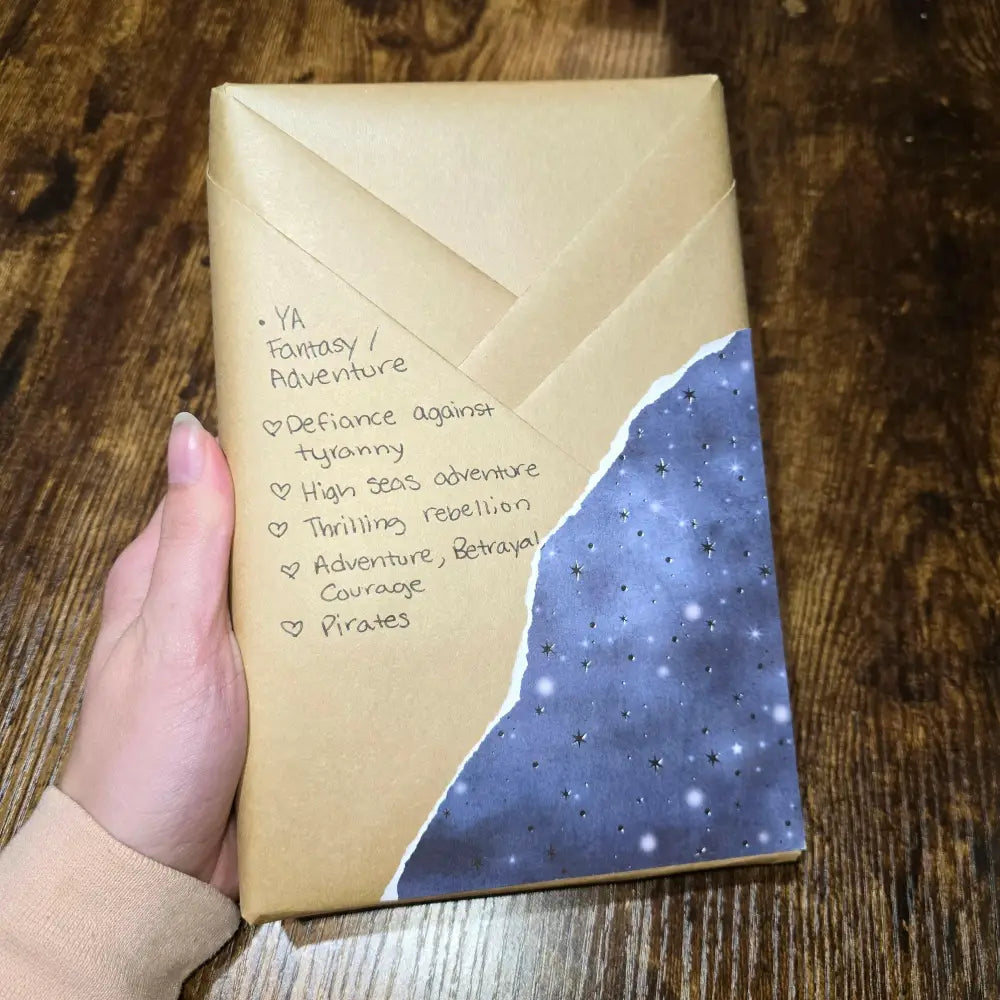 • YA
Fantasy /
Adventure
♡ Defiance against
tyranny
♡ High seas adventure
♡ Thrilling rebellion
♡ Adventure, Betrayal
Courage
♡ Pirates